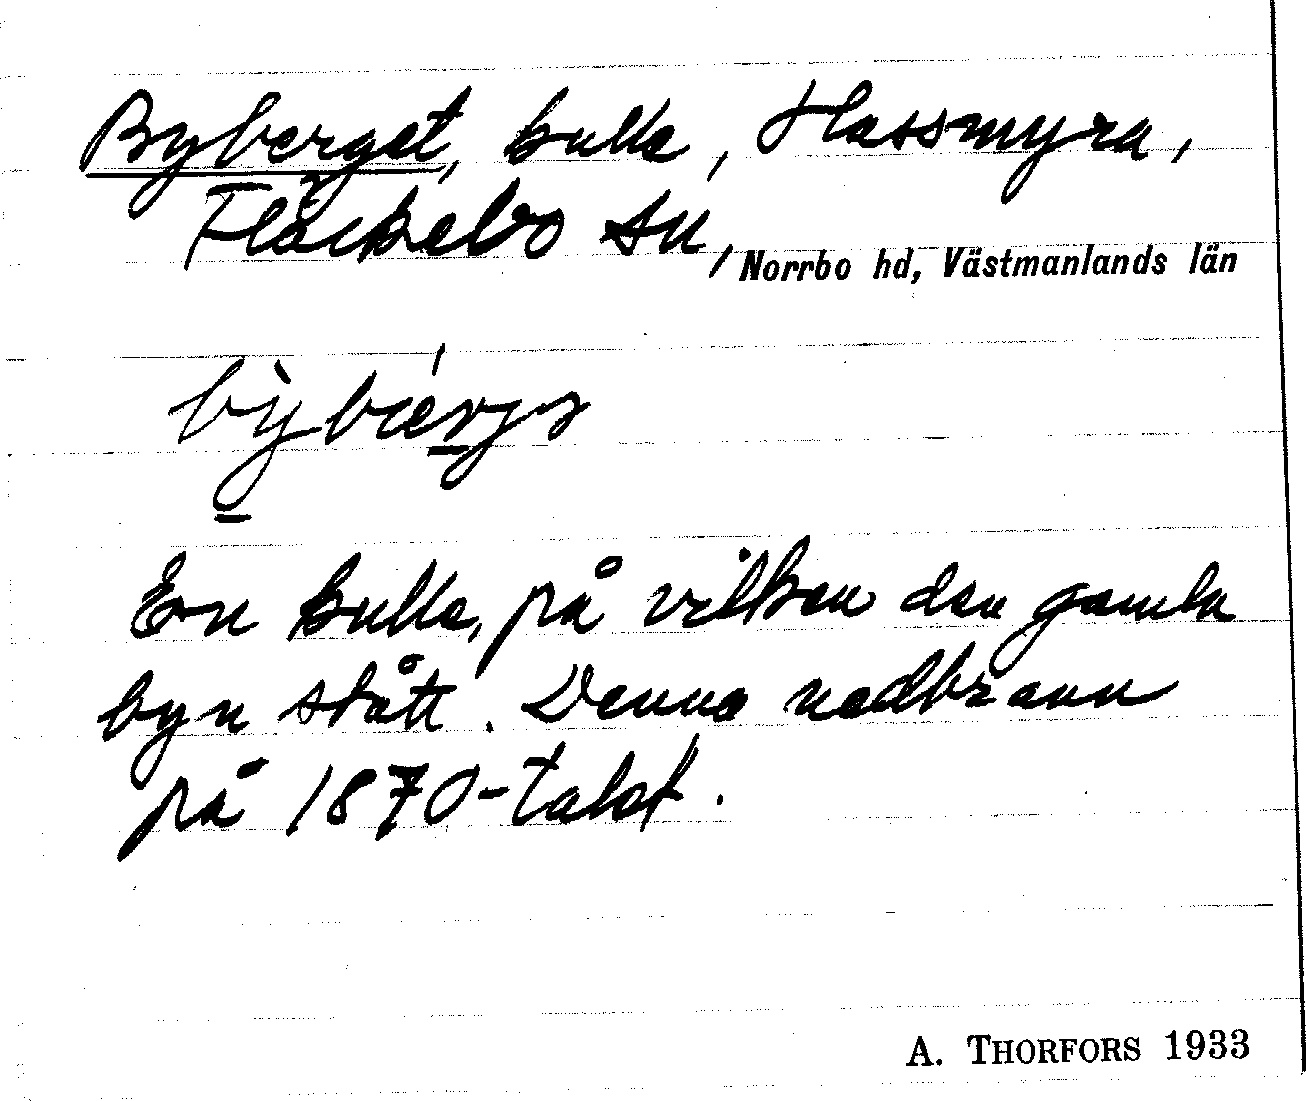 Byberget, kulle, Hassmyra,
Fläckebo sn,
Norrbo hd, Västmanlands län
En kulle, på vilken den gamla
byn stått. Denna nedbrann
på 1870-talet.
A. THORFORS 1933